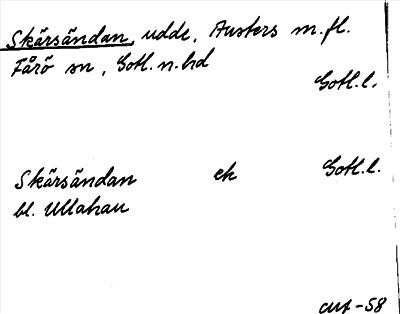 Skärsändan, udde, Austers m.fl.
Fårö sn, Gotl. n. hd
Gotl.l.
Skärsändan ek Gotl.l.
bl. Ullahau
cut-58